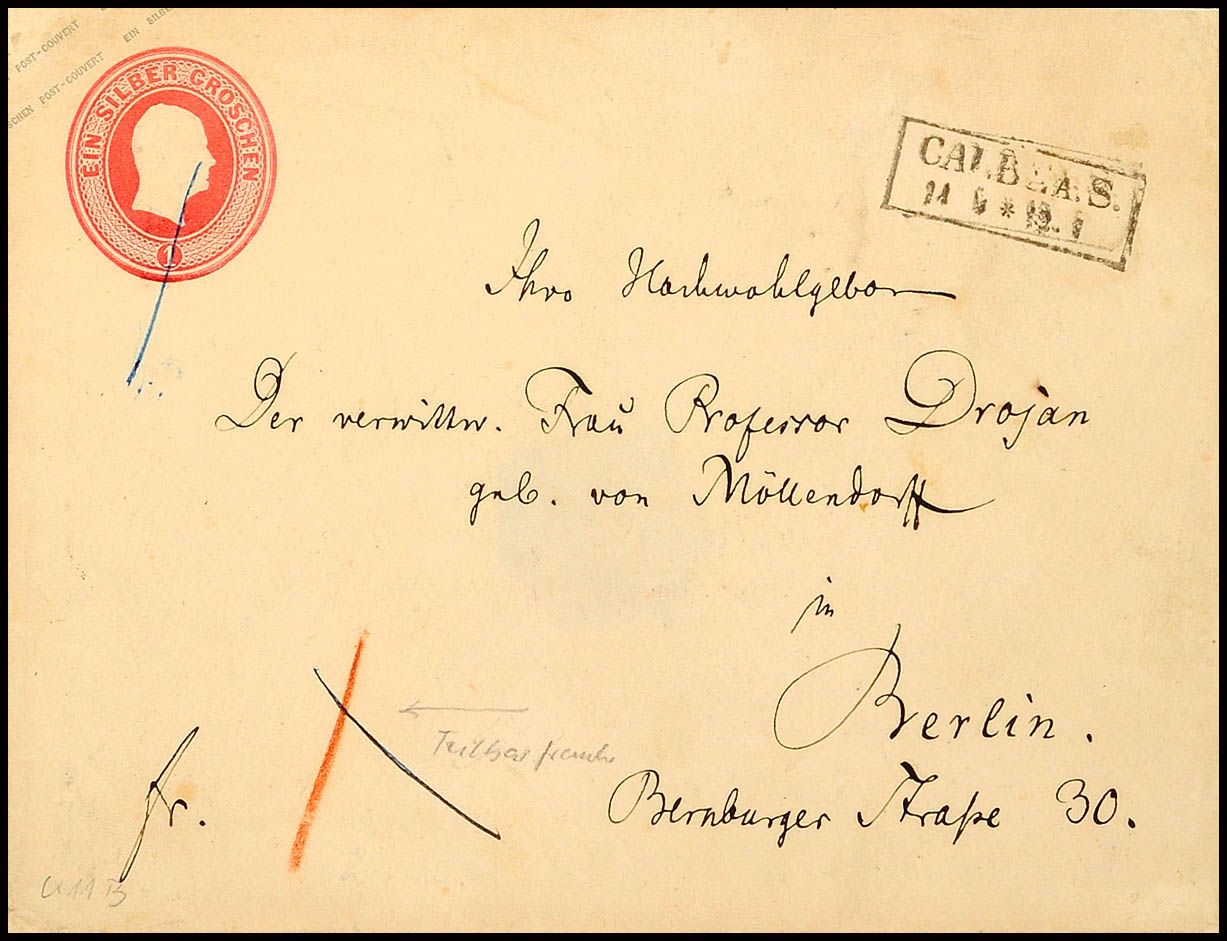 POST-COUVERT
EIN SILBE
SCHEN POST-COUVERT
EIN SILBER GROSCHEN
1
CALBE A. S.
11 * 
Ihro Hochwohlgeborn
Der verwittw. Frau Professor Drojan
geb. von Möllendorff
in
Berlin.
Bernburger Straße 30.
fr.
Teilbarfranko
U 11 B